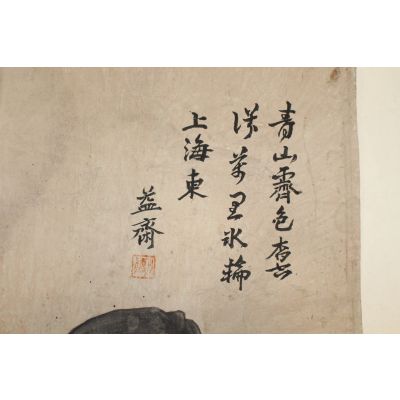 青山霽色杳空
濛萬里冰輪
上海東
益齋